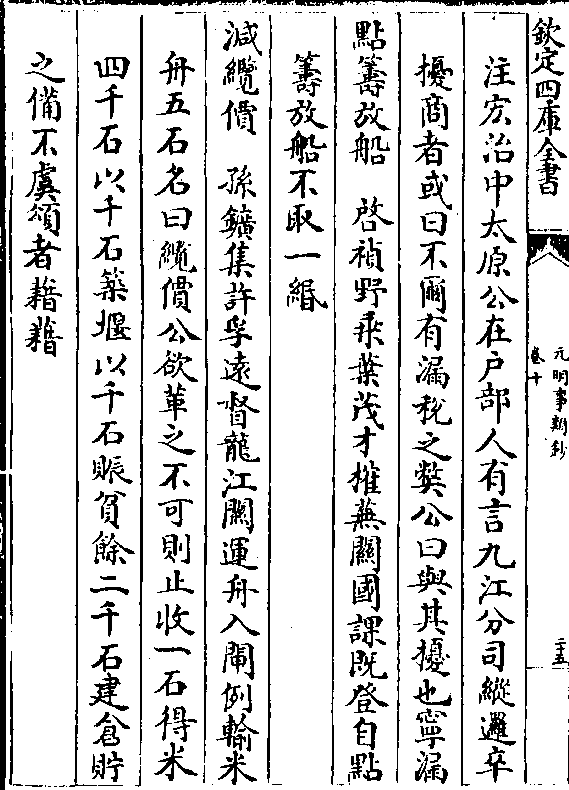 欽定四庫全書
元明事類鈔
卷十
二五
注宏治中太原公在戶部人有言九江分司縱邏卒
擾商者或曰不爾有漏稅之獘公曰與其擾也寧漏
點籌放船　啓禎野乗葉茂才榷蕪關國課既登自點
籌放船不取一緡
減纜價　孫鑛集許孚遠督龍江關運舟入閘例輸米
舟五石名曰纜價公欲革之不可則止收一石得米
四千石以千石築堰以千石賑貧餘二千石建倉貯
之備不虞頌者藉藉